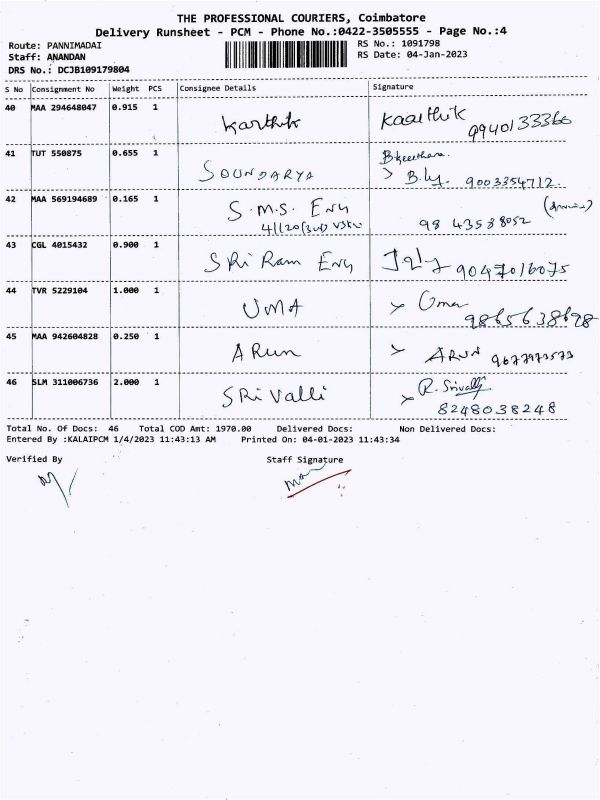 THE PROFESSIONAL COURIERS, Coimbatore
Delivery Runsheet - PCM - Phone No.:0422-3505555 - Page No.:4
Route: PANNIMADAI
RS No.: 1091798
Staff: ANANDAN
RS Date: 04-Jan-2023
DRS No.: DCJB109179804
S No Consignment No Weight PCS Consignee Details Signature
40 MAA 294648047 0.915 1 Karthik Kaarthik
9940133366
41 TUT 550875 0.655 1 SOUNDARYA
9003354712
42 MAA 569194689 0.165 1 S.M.S. Eng
98 43538052
43 CGL 4015432 0.900 1 SRi Ram Eng 9047016075
44 TVR 5229104 1.000 1 UMA Uma
9865638698
45 MAA 942604828 0.250 1 ARun ARUN
46 SLM 311006736 2.000 1 SRi Valli R. Srivalli
8248038248
Total No. Of Docs: 46 Total COD Amt: 1970.00 Delivered Docs: Non Delivered Docs:
Entered By :KALAIPCM 1/4/2023 11:43:13 AM Printed On: 04-01-2023 11:43:34
Verified By Staff Signature